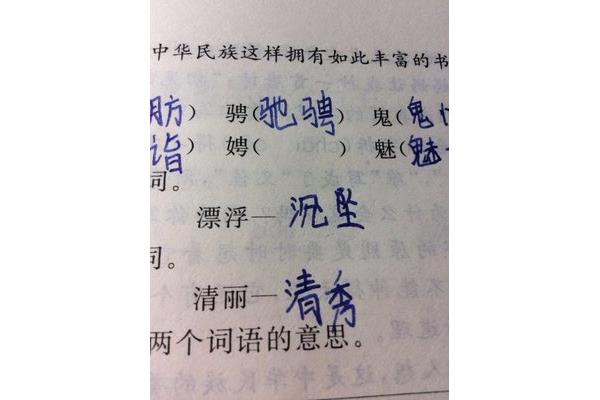 中华民族这样拥有如此丰富的书
肪) 骋(驰骋) 鬼(鬼
诣) 娉( ) 魅(魅
词。
漂浮—沉坠
司。
清丽—清秀
两个词语的意思。